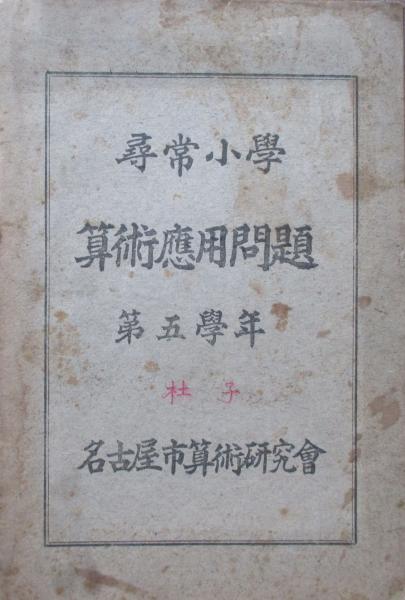 尋常小學
算術應用問題
第五學年
杜子
名古屋市算術研究會